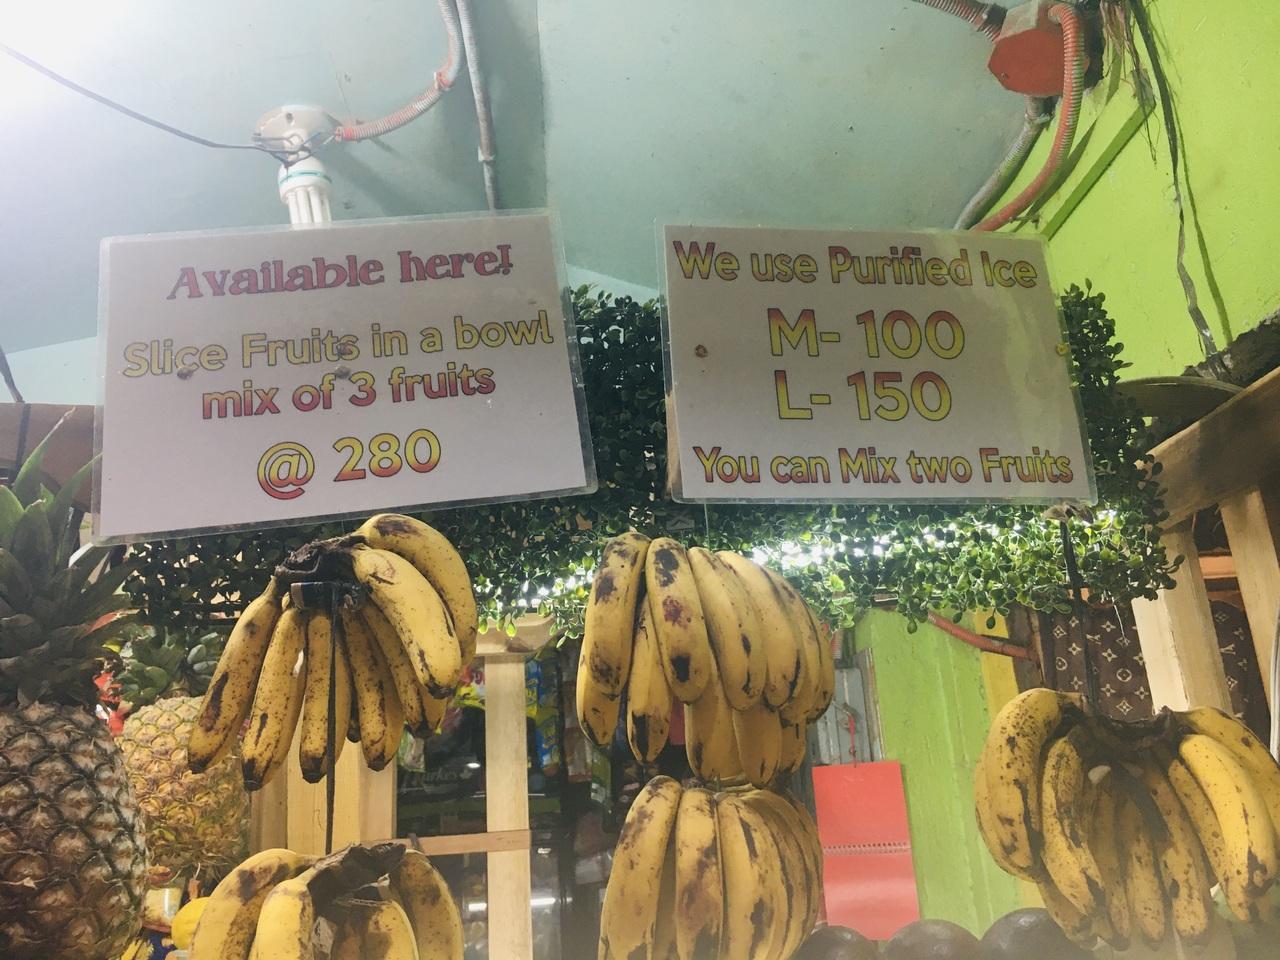 Available here!
Slice Fruits in a bowl
mix of 3 fruits
@ 280
We use Purified Ice
M- 100
L- 150
You can Mix two Fruits